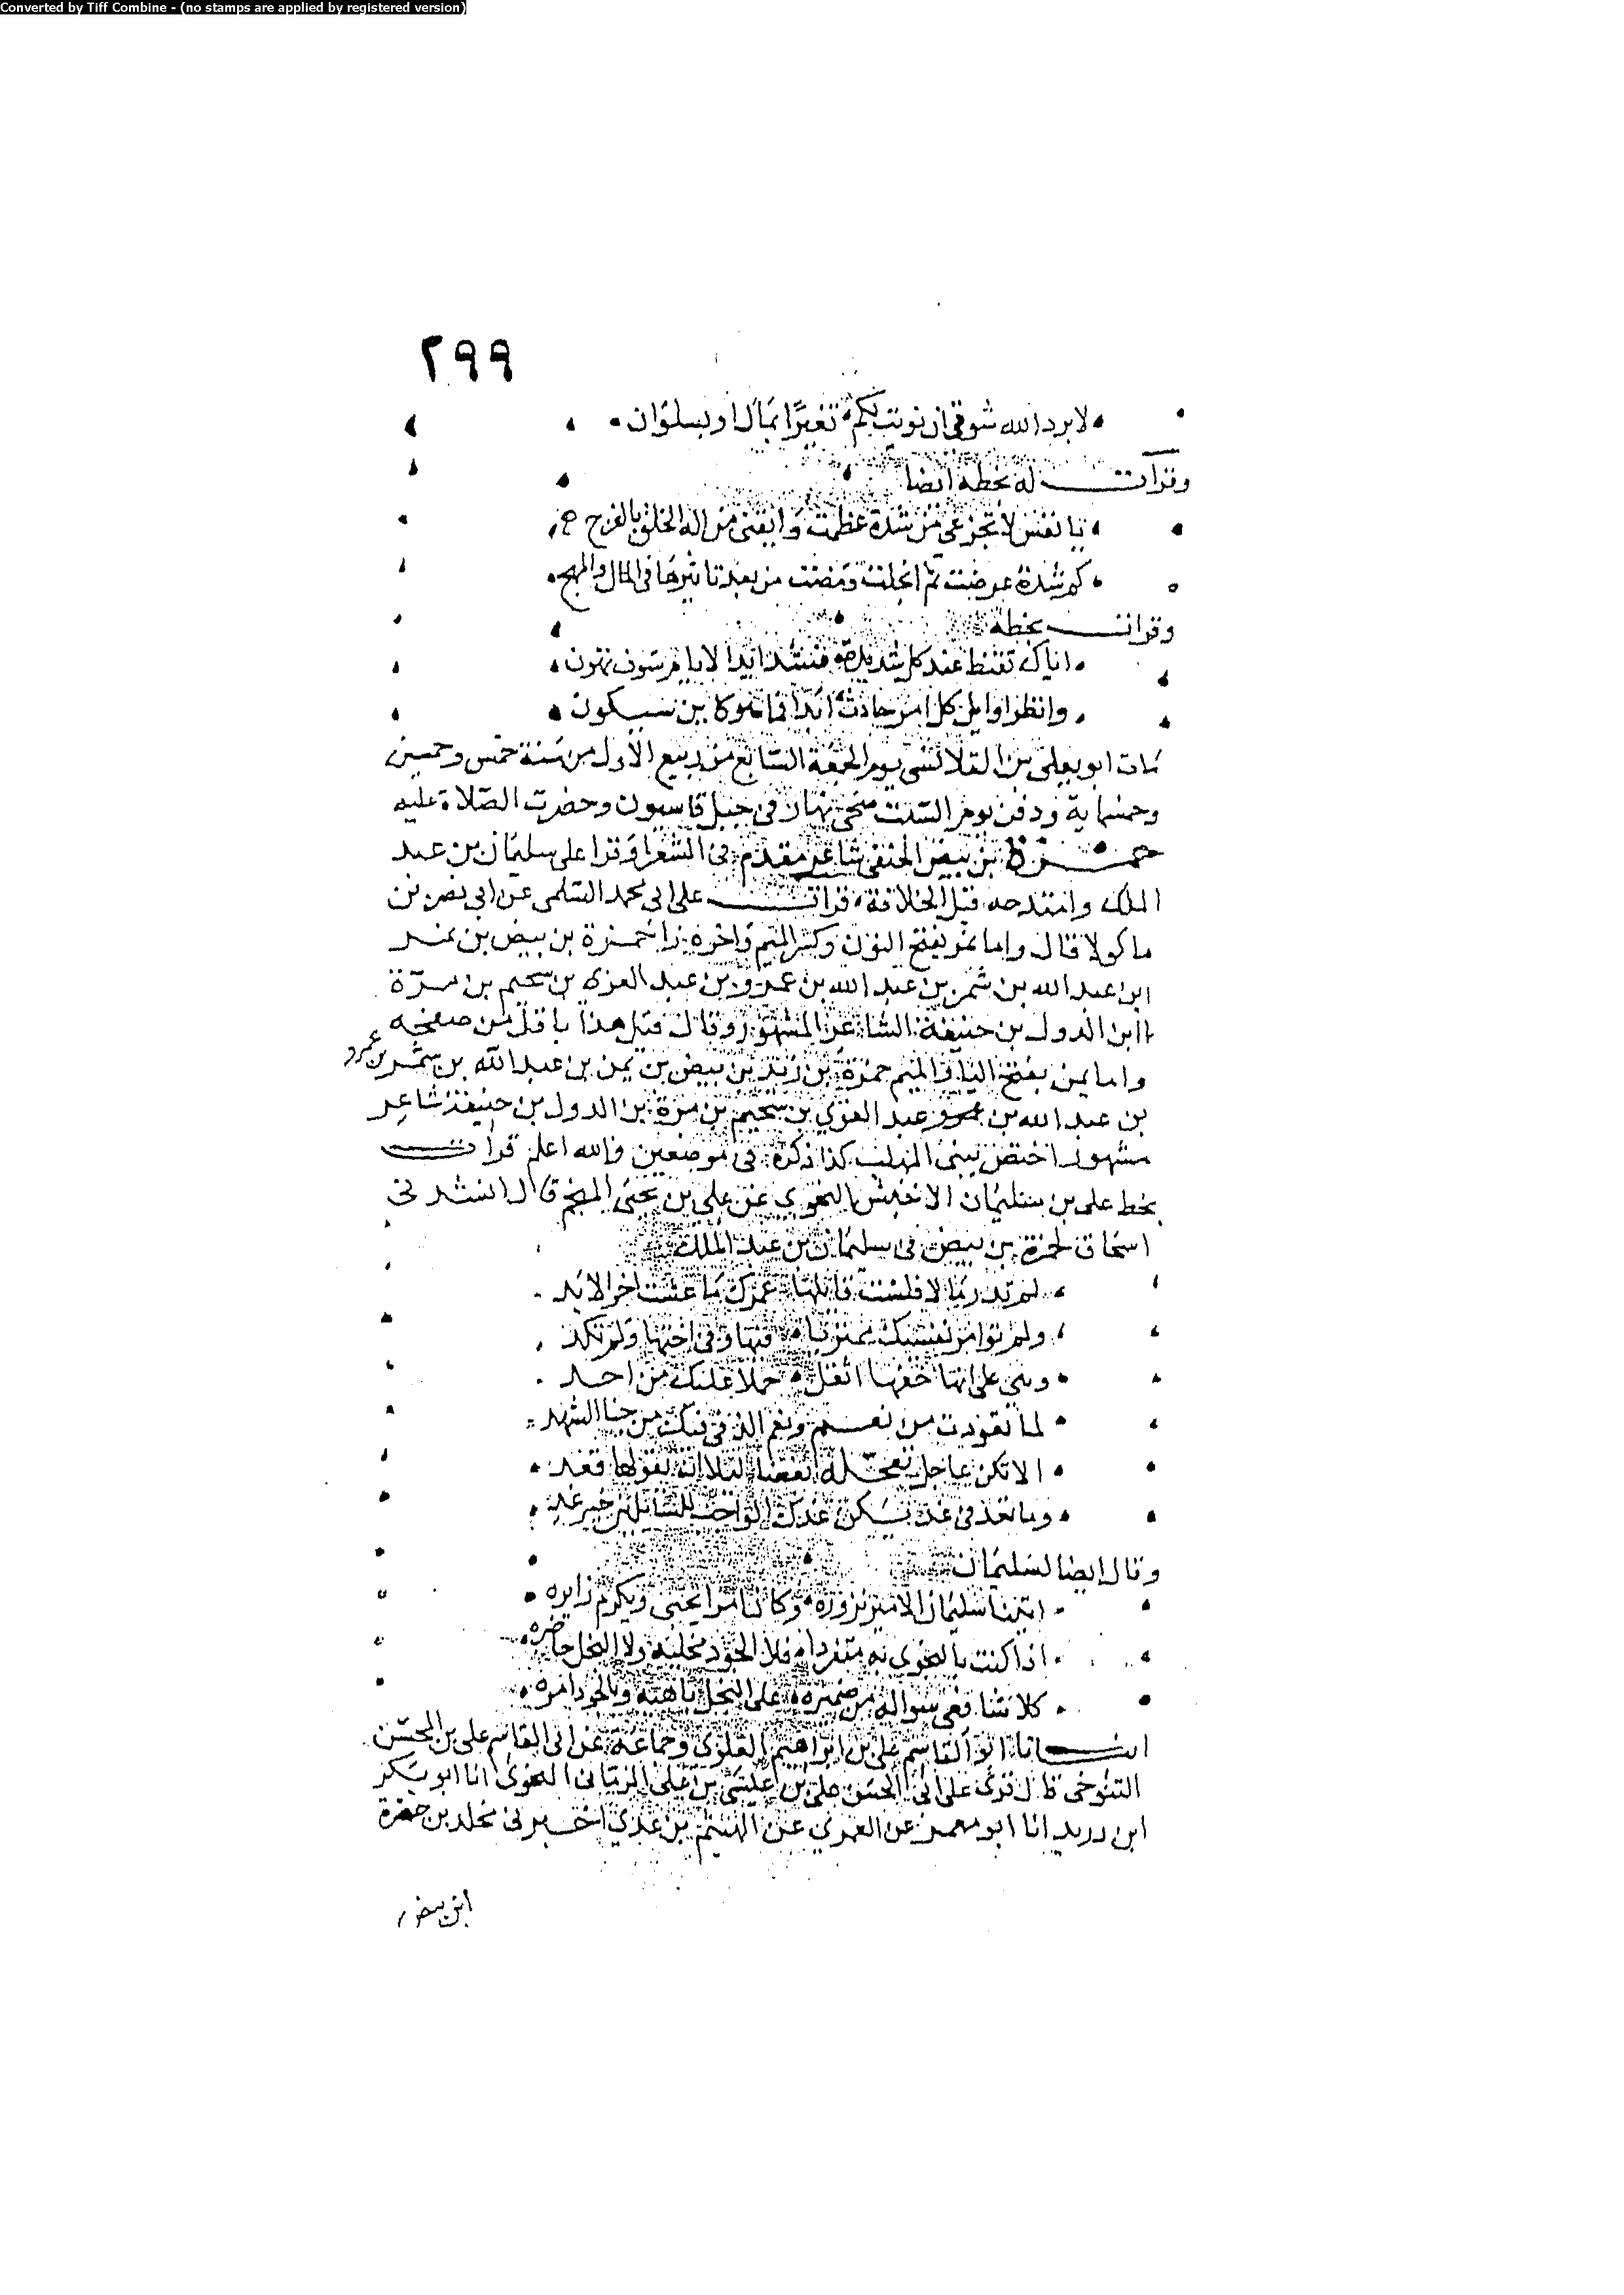 Converted by Tiff Combine - (no stamps are applied by registered version)
٢٩٩
لا برد الله شوقي ان نويت لكم تغيرا بمال او بسلوان
وقرأت له بخطه ايضا
يا نفس لا تجزعي من شدة عظمت وايقني من اله الخلق بالفرج
كم شدة عرضت ثم انجلت ومضت من بعد تاثيرها في المال والمهج
وقرات بخطه
اياك تقنط عند كل شديدة فشدايد الايام سوف تهون
وانظر اوايل كل امر حادث ابدا فما هو كاين سيكون
مات ابو يعلى بن القلانسي يوم الجمعة السابع من ربيع الاول من سنة خمس وخمسين
وخمسماية ودفن يوم السبت ضحى نهار في جبل قاسيون وحضرت الصلاة عليه
حمزة بن بيض الحنفي شاعر مقدم في الشعرا وفد على سليمان بن عبد
الملك وامتدحه قبل الخلافة قرات على ابي محمد السلمي عن ابي نصر بن
ماكولا قال واما نمر بفتح النون وكسر الميم واخره زا حمزة بن بيض بن نمر
ابن عبد الله بن شمر بن عبد الله بن عمرو بن عبد العزى بن سحيم بن مرة
ابن الدول بن حنيفة الشاعر المشهور وقال قبل هذا باقل من صفحه
واما يمن بفتح اليا والميم حمزة بن زيد بن بيض بن يمن بن عبد الله بن شمر بن عمرو
بن عبد الله بن عمرو عبد العزي بن سحيم بن مرة بن الدول بن حنيفة شاعر
مشهور اختص ببني المهلب كذا ذكره في موضعين والله اعلم قرات
بخط علي بن سليمان الاخفش النحوي عن علي بن يحيى المنجم قال انشدني
اسحاق لحمزة بن بيض في سليمان بن عبد الملك
لم تدر ما لا فلست قايلها عمرك ما عشت اخر الابد
ولم توامر نفسيك ممتريا فيها وفي اختها ولم تكد
وهي على انها خفها اثقل حملا عليك من احد
لما تعودت من نعم ونعم الذ في فيك من جنا الشهد
الا تكن عاجل تعجله
وما تعد في غد يكن غدك الواجب للسايلين خير غد
وقال ايضا لسليمان
اتينا سليمان الامير نزوره وكان امرا يحبى ويكرم زايره
اذا كنت بالنجوى به متفردا فلا الجود مخليه ولا البخل حاضره
كلا شافعي سواله من ضميره على البخل ناهيه وبالجود امره
انبانا ابو القاسم علي بن ابراهيم العلوي وجماعة عن ابي القاسم علي بن المحسن
التنوخي قال قرى على ابي الحسن علي بن عيسى بن علي الرماني النحوي انا ابو بكر
ابن دريد انا ابو معمر عن العمري عن الهيثم بن عدي اخبرني مخلد بن حمزة
ابن بيض